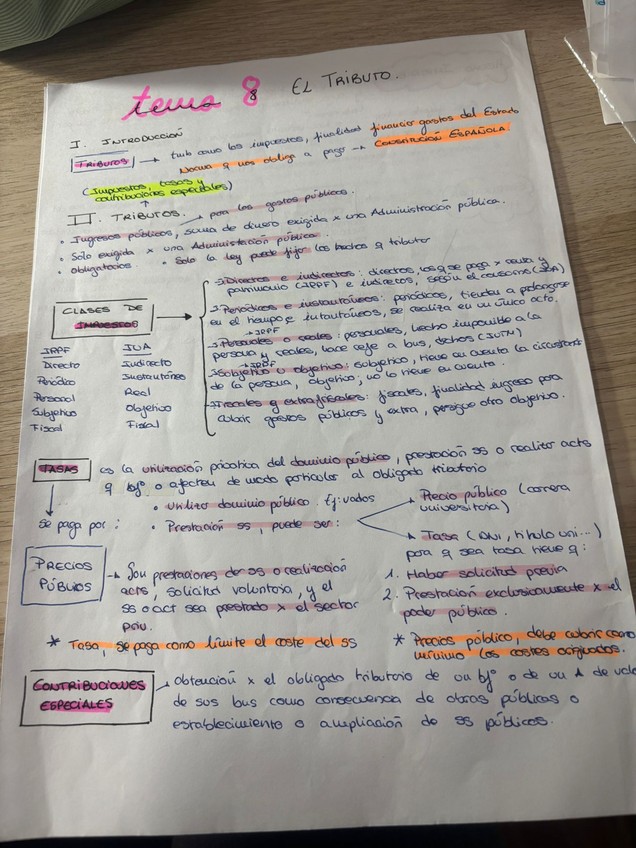 tema 8 EL TRIBUTO.
I. INTRODUCCIÓN
TRIBUTOS → tmb como los impuestos, finalidad financiar gastos del Estado
Norma q nos obliga a pagar → CONSTITUCIÓN ESPAÑOLA.
(Impuestos, tasas y
contribuciones especiales)
II. TRIBUTOS. → pora los gastos públicos.
· Ingresos públicos, suma de dinero exigida x una Administración pública.
· Solo exigida x una Administración pública.
· obligatorios · Solo la ley puede fijar los hechos q tributar
CLASES DE
IMPUESTOS
→ Directos e indirectos: directos, los q se paga x renta y
patrimonio (IRPF) e indirectos, según el consumo (IVA)
→ Periódicos e instantáneos: periódicos, tienden a prolongarse
en el tiempo e intantáneos, se realiza en un único acto.
→ IRPF
→ Personales o reales: personales, hecho imponible a la
persona y reales, hace a bns, dchos (IVTM)
→ IRPF
→ Subjetivo u objetivo: subjetivo, tiene en cuenta la circunstancia
de la persona, objetivo; no lo tiene en cuenta.
→ Fiscales y extrafiscales: fiscales, finalidad ingreso para
cubrir gastos públicos y extra, persigue otro objetivo.
IRPF IVA
Directo Indirecto
Periódico Instantáneo
Personal Real
Subjetivo Objetivo
Fiscal Fiscal
TASAS es la utilización privativa del dominio público, prestación ss o realizar acts
q bfº o afecten de modo particular al obligado tributario
Se paga por:
· Utilizar dominio público. Ej: vados
· Prestación ss, puede ser:
→ Precio público (carrera
universitaria)
→ Tasa (DNI, título uni...)
para q sea tasa tiene q:
1. Haber solicitud previa
2. Prestación exclusivamente x el
poder público.
PRECIOS
PÚBLIOS
→ Son prestaciones de ss o realización
acts, solicitud voluntaria, y el
ss o act sea prestado x el sector
priv.
* Tasa, se paga como límite el coste del ss
* Precios público, debe cubrir como
mínimo los costes originados.
CONTRIBUCIONES
ESPECIALES
→ Obtención x el obligado tributario de un bfº o de un ↑ de valor
de sus bns como consecuencia de obras públicas o
establecimiento o ampliación de ss públicos.